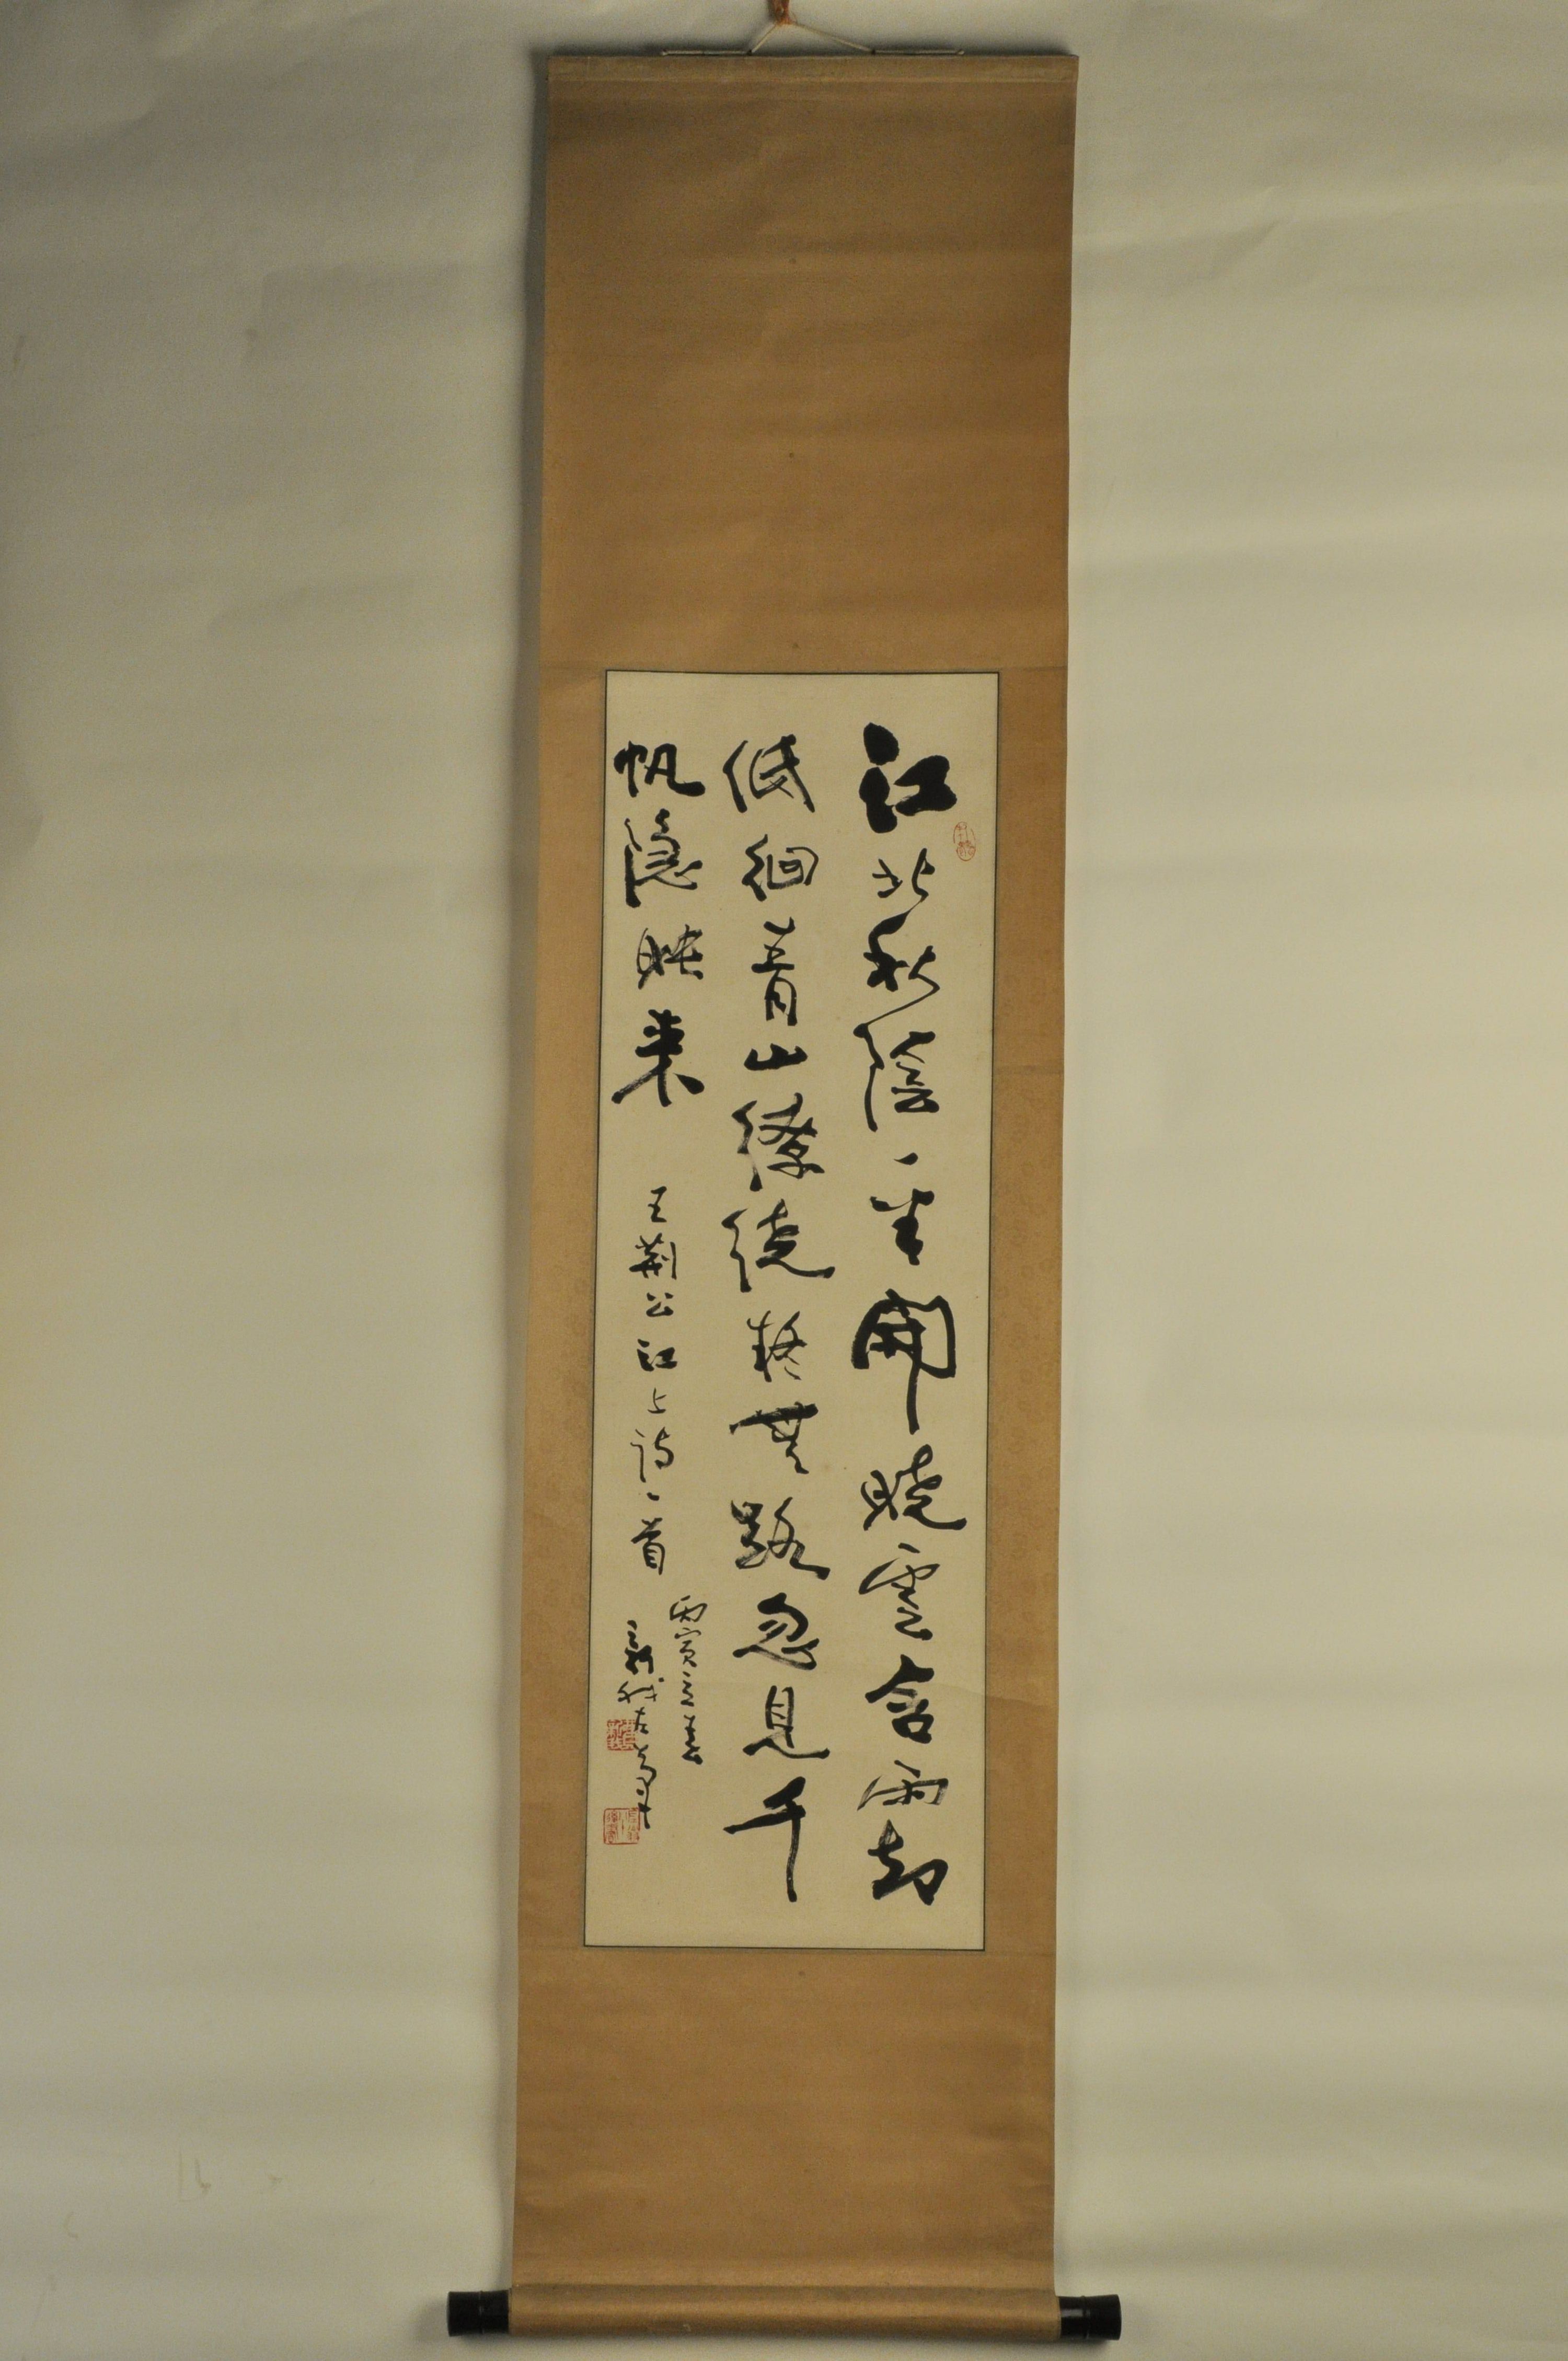 江北秋陰一半開曉雲含雨却
低徊青山繚繞疑無路忽見千
帆隱映來
王荊公江上詩一首
丙寅立春